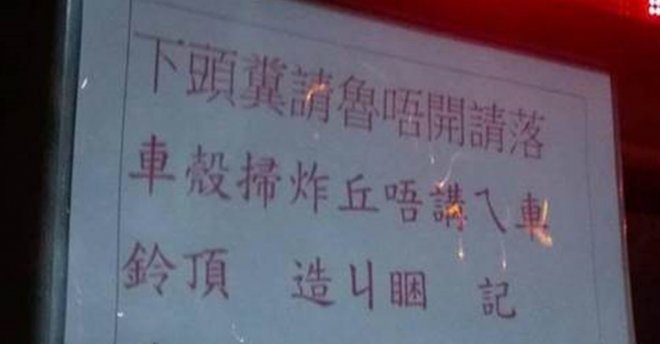 下頭糞請魯唔開請落
車殼掃炸丘唔講乀車
鈴頂 造丩睏 記